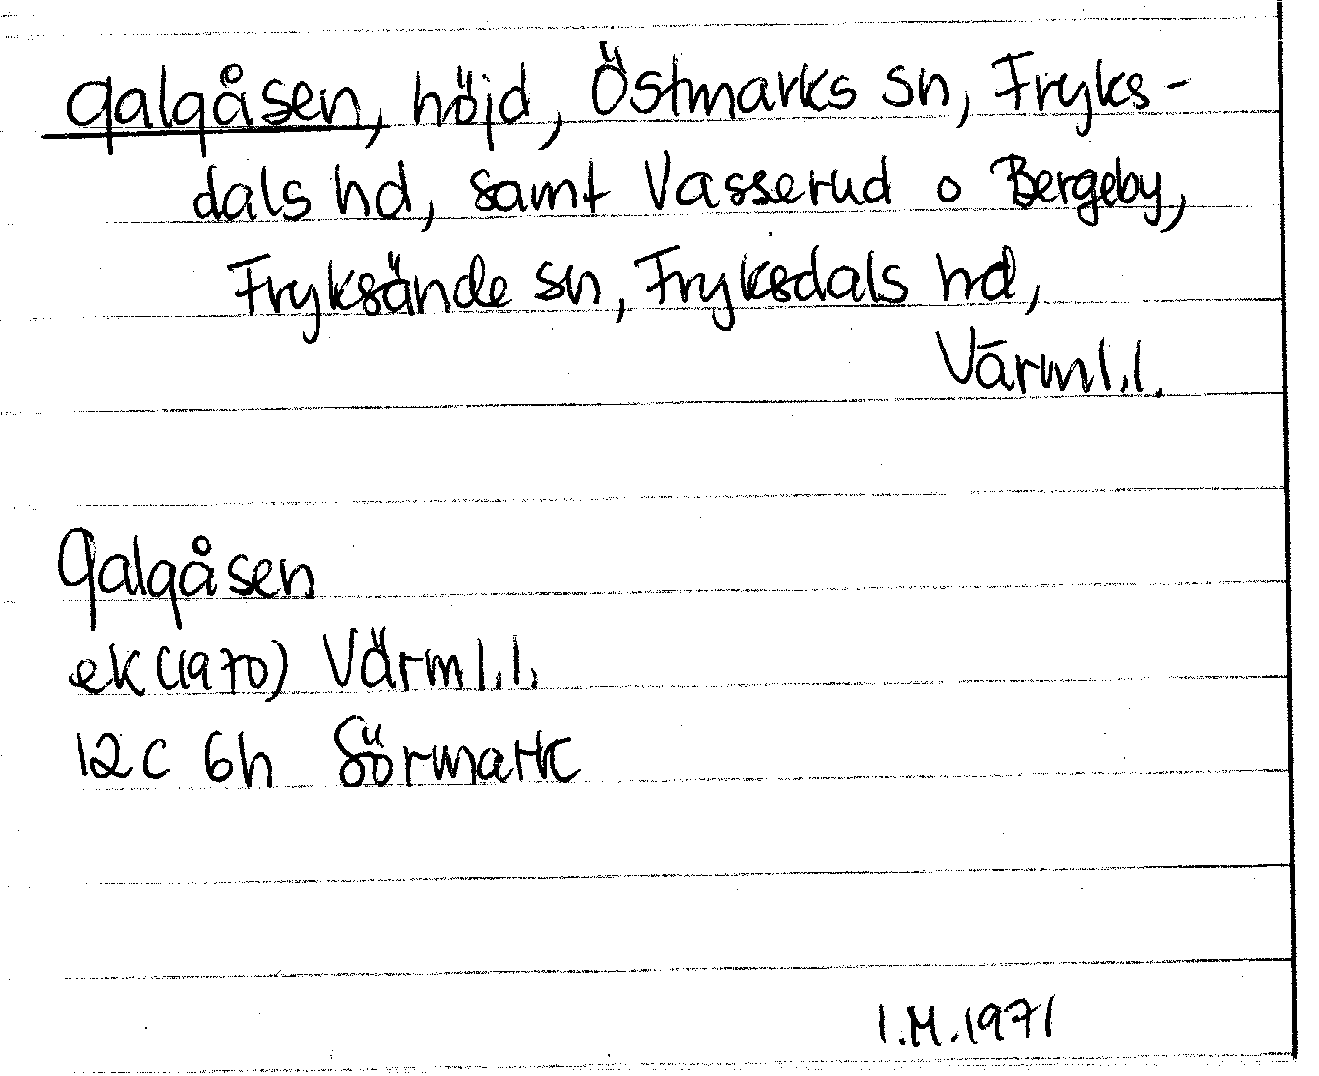 Galgåsen, höjd, Östmarks sn, Fryks-
dals hd, samt Vasserud o Bergeby,
Fryksände sn, Fryksdals hd,
Värml.l.
Galgåsen
ek (1970) Värml.l.
12C 6h Sörmark
I.M.1971